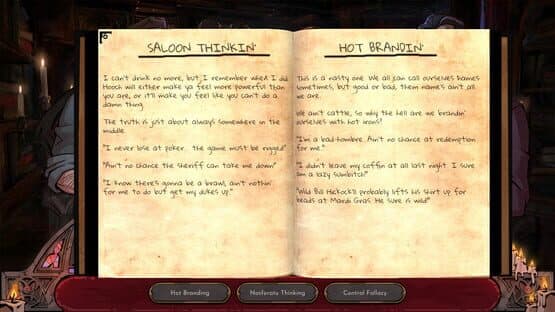 SALOON THINKIN'
I can't drink no more, but I remember when I did.
Hooch will either make ya feel more powerful than
you are, or it'll make you feel like you can't do a
damn thing.
The truth is just about always somewhere in the
middle.
"I never lose at poker... the game must be rigged"
"Ain't no chance the sheriff can take me down"
"I know there's gonna be a brawl, ain't nothin'
for me to do but get my dukes up."
HOT BRANDIN'
This is a nasty one. We all can call ourselves names
sometimes, but good or bad, them names ain't all
we are.
We ain't cattle, so why the hell are we brandin'
ourselves with hot irons?
"I'm a bad hombre. Ain't no chance at redemption
for me."
"I didn't leave my coffin at all last night. I sure
am a lazy sumbitch"
"Wild Bill Hickock'll probably lifts his shirt up for
beads at Mardi Gras. He sure is wild"
Hot Branding
Nosferatu Thinking
Control Fallacy